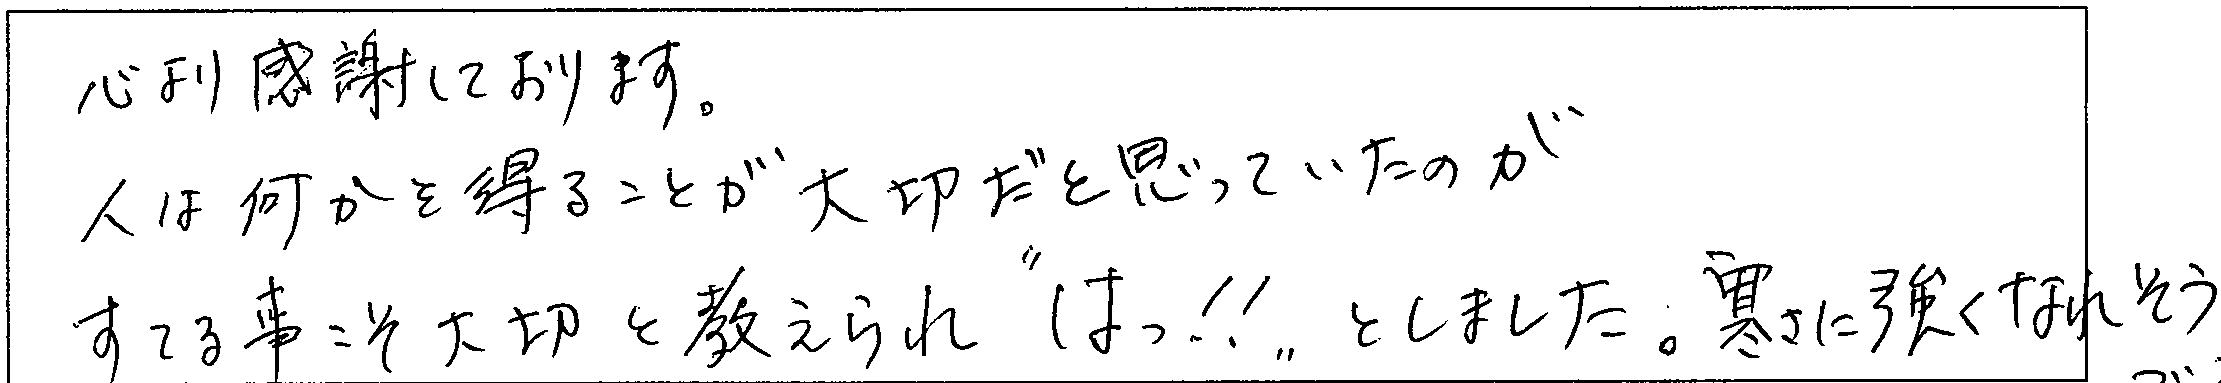 心より感謝しております。
人は何かを得ることが大切だと思っていたのが
すてる事こそ大切と教えられ“はっ!!„としました。寒さに強くなれそう